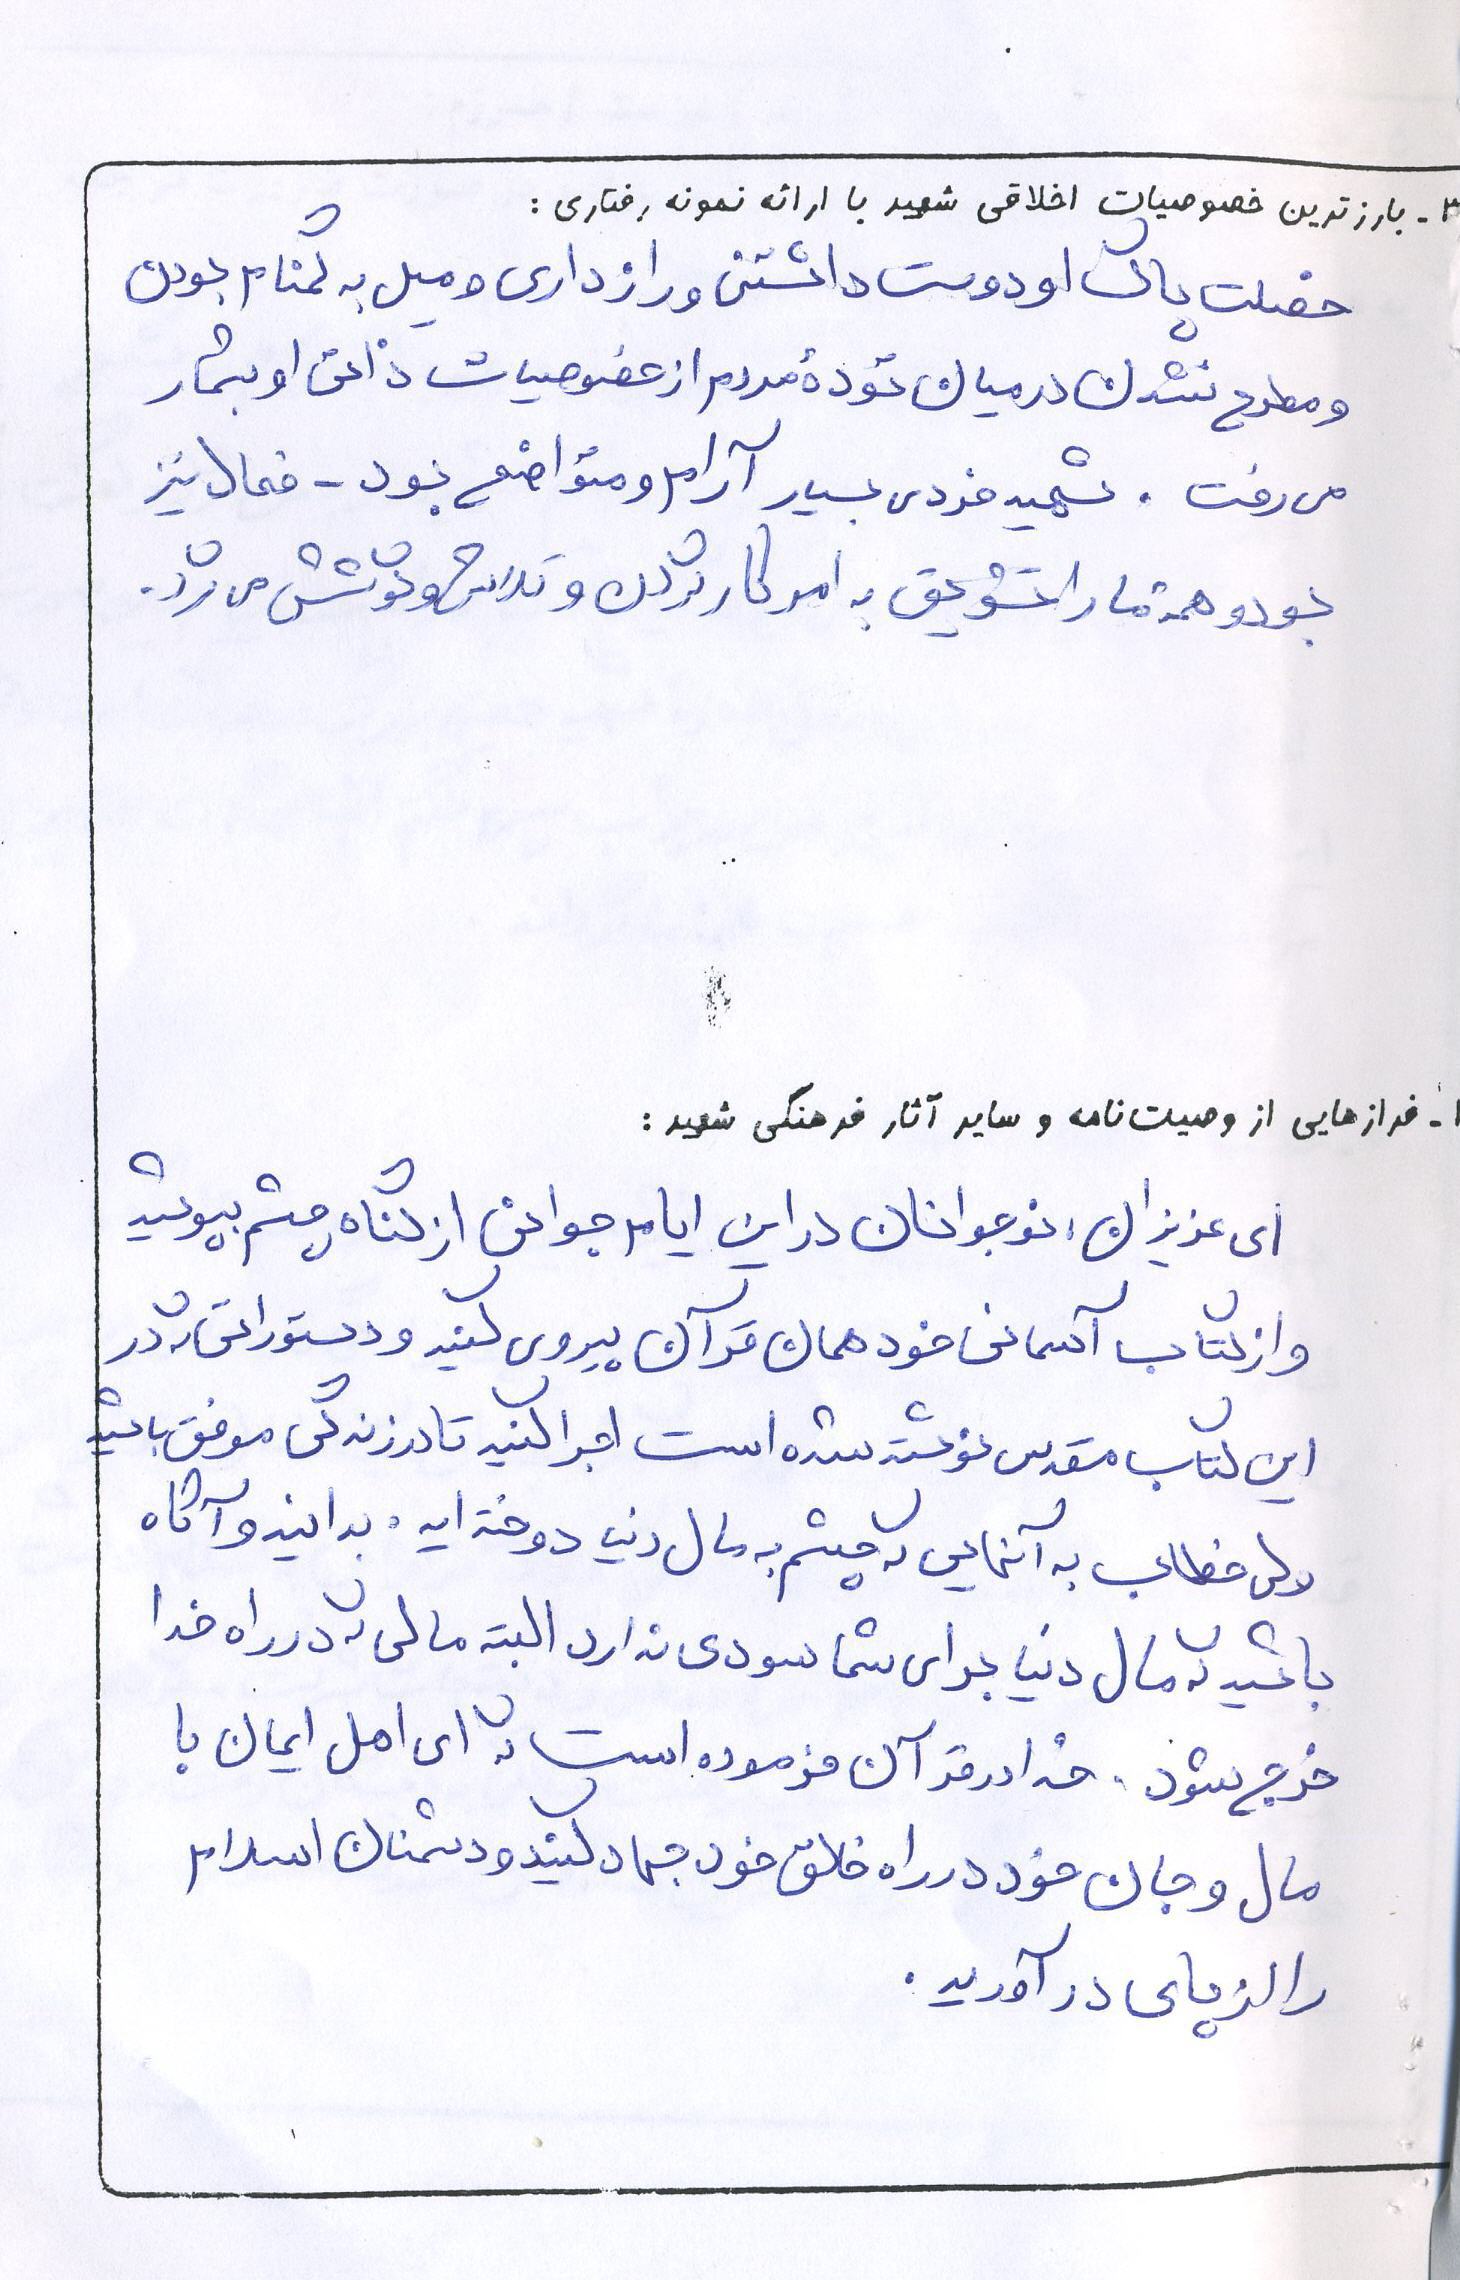 ۳- بارزترین خصوصیات اخلاقی شهید با ارائه نمونه رفتاری :
خصلت پاک او دوست داشتنی و رازداری و میل به گمنام بودن
و مطرح نشدن در میان تودهٔ مردم از خصوصیات ذاتی او بشمار
می رفت . شهید فردی بسیار آرام و متواضع بود - فعال نیز
بود و همهٔ ما را تشویق به امر کار کردن و تلاش و کوشش می کرد .
فرازهایی از وصیت نامه و سایر آثار فرهنگی شهید :
ای عزیزان ، نوجوانان در این ایام جوانی از گناه چشم بپوشید
و از کتاب آسمانی خود همان قرآن پیروی کنید و دستوراتی که در
این کتاب مقدس نوشته شده است اجرا کنید تا در زندگی موفق باشید
ولی خطاب به آنهایی که چشم به مال دنیا دوخته اید . بدانید و آگاه
باشید که مال دنیا برای شما سودی ندارد البته مالی که در راه خدا
خرج شود . خدا در قرآن فرموده است که ای اهل ایمان با
مال و جان خود در راه خالق خود جهاد کنید و دشمنان اسلام
را از پای در آورید .